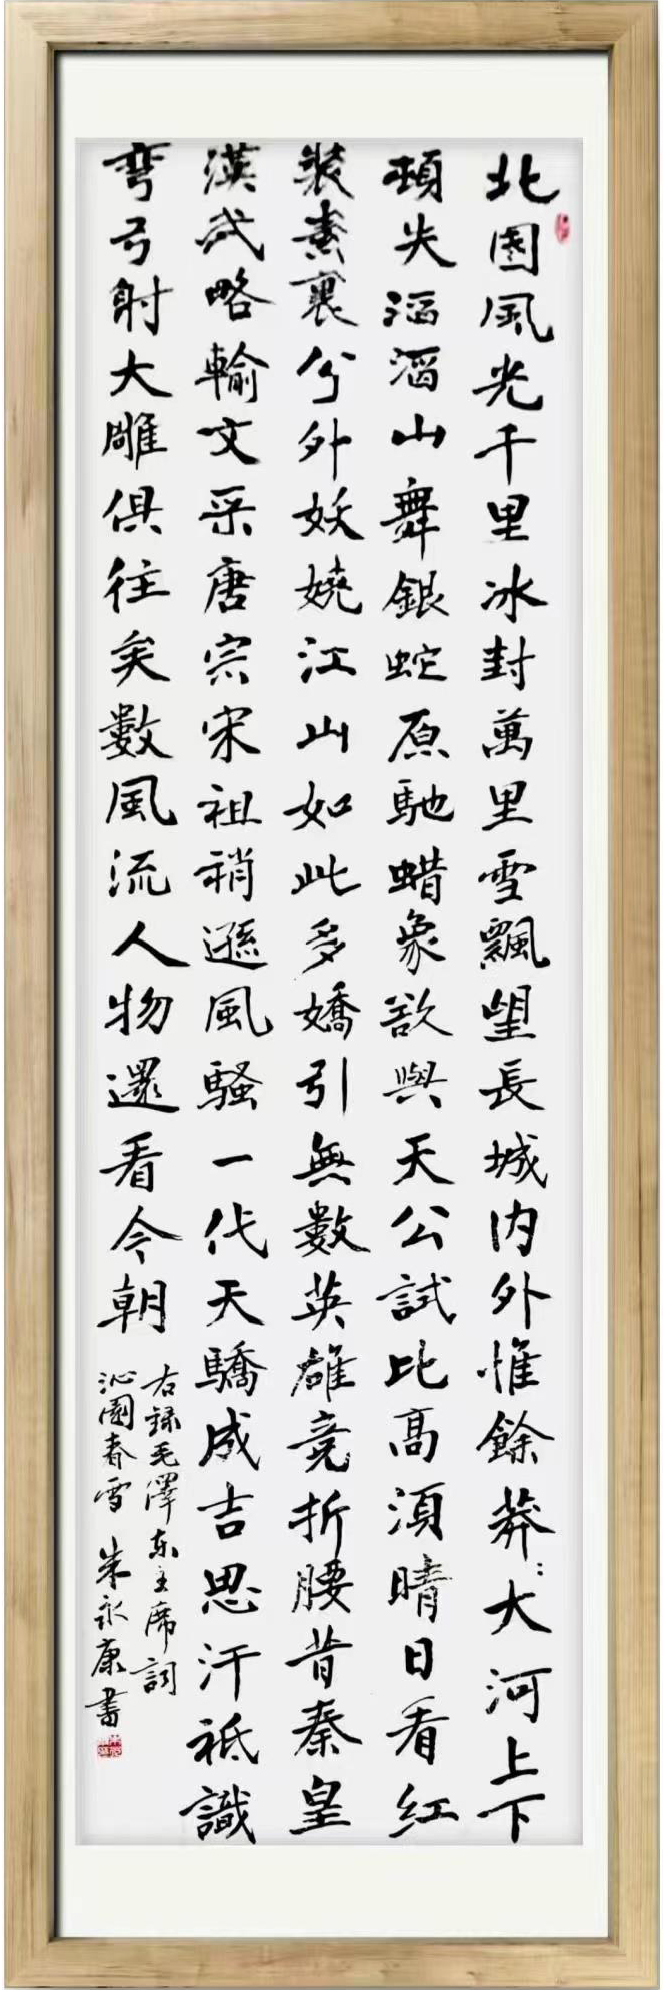 北國風光千里冰封萬里雪飄望長城内外惟餘莽〻大河上下
頓失滔滔山舞銀蛇原馳蜡象欲與天公試比高須晴日看紅
裝素裹兮外妖嬈江山如此多嬌引無數英雄竞折腰昔秦皇
漢武略輸文采唐宗宋祖稍遜風騷一代天驕成吉思汗祗識
弯弓射大雕俱往矣數風流人物還看今朝
右録毛澤东主席詞
沁園春雪 朱永康書